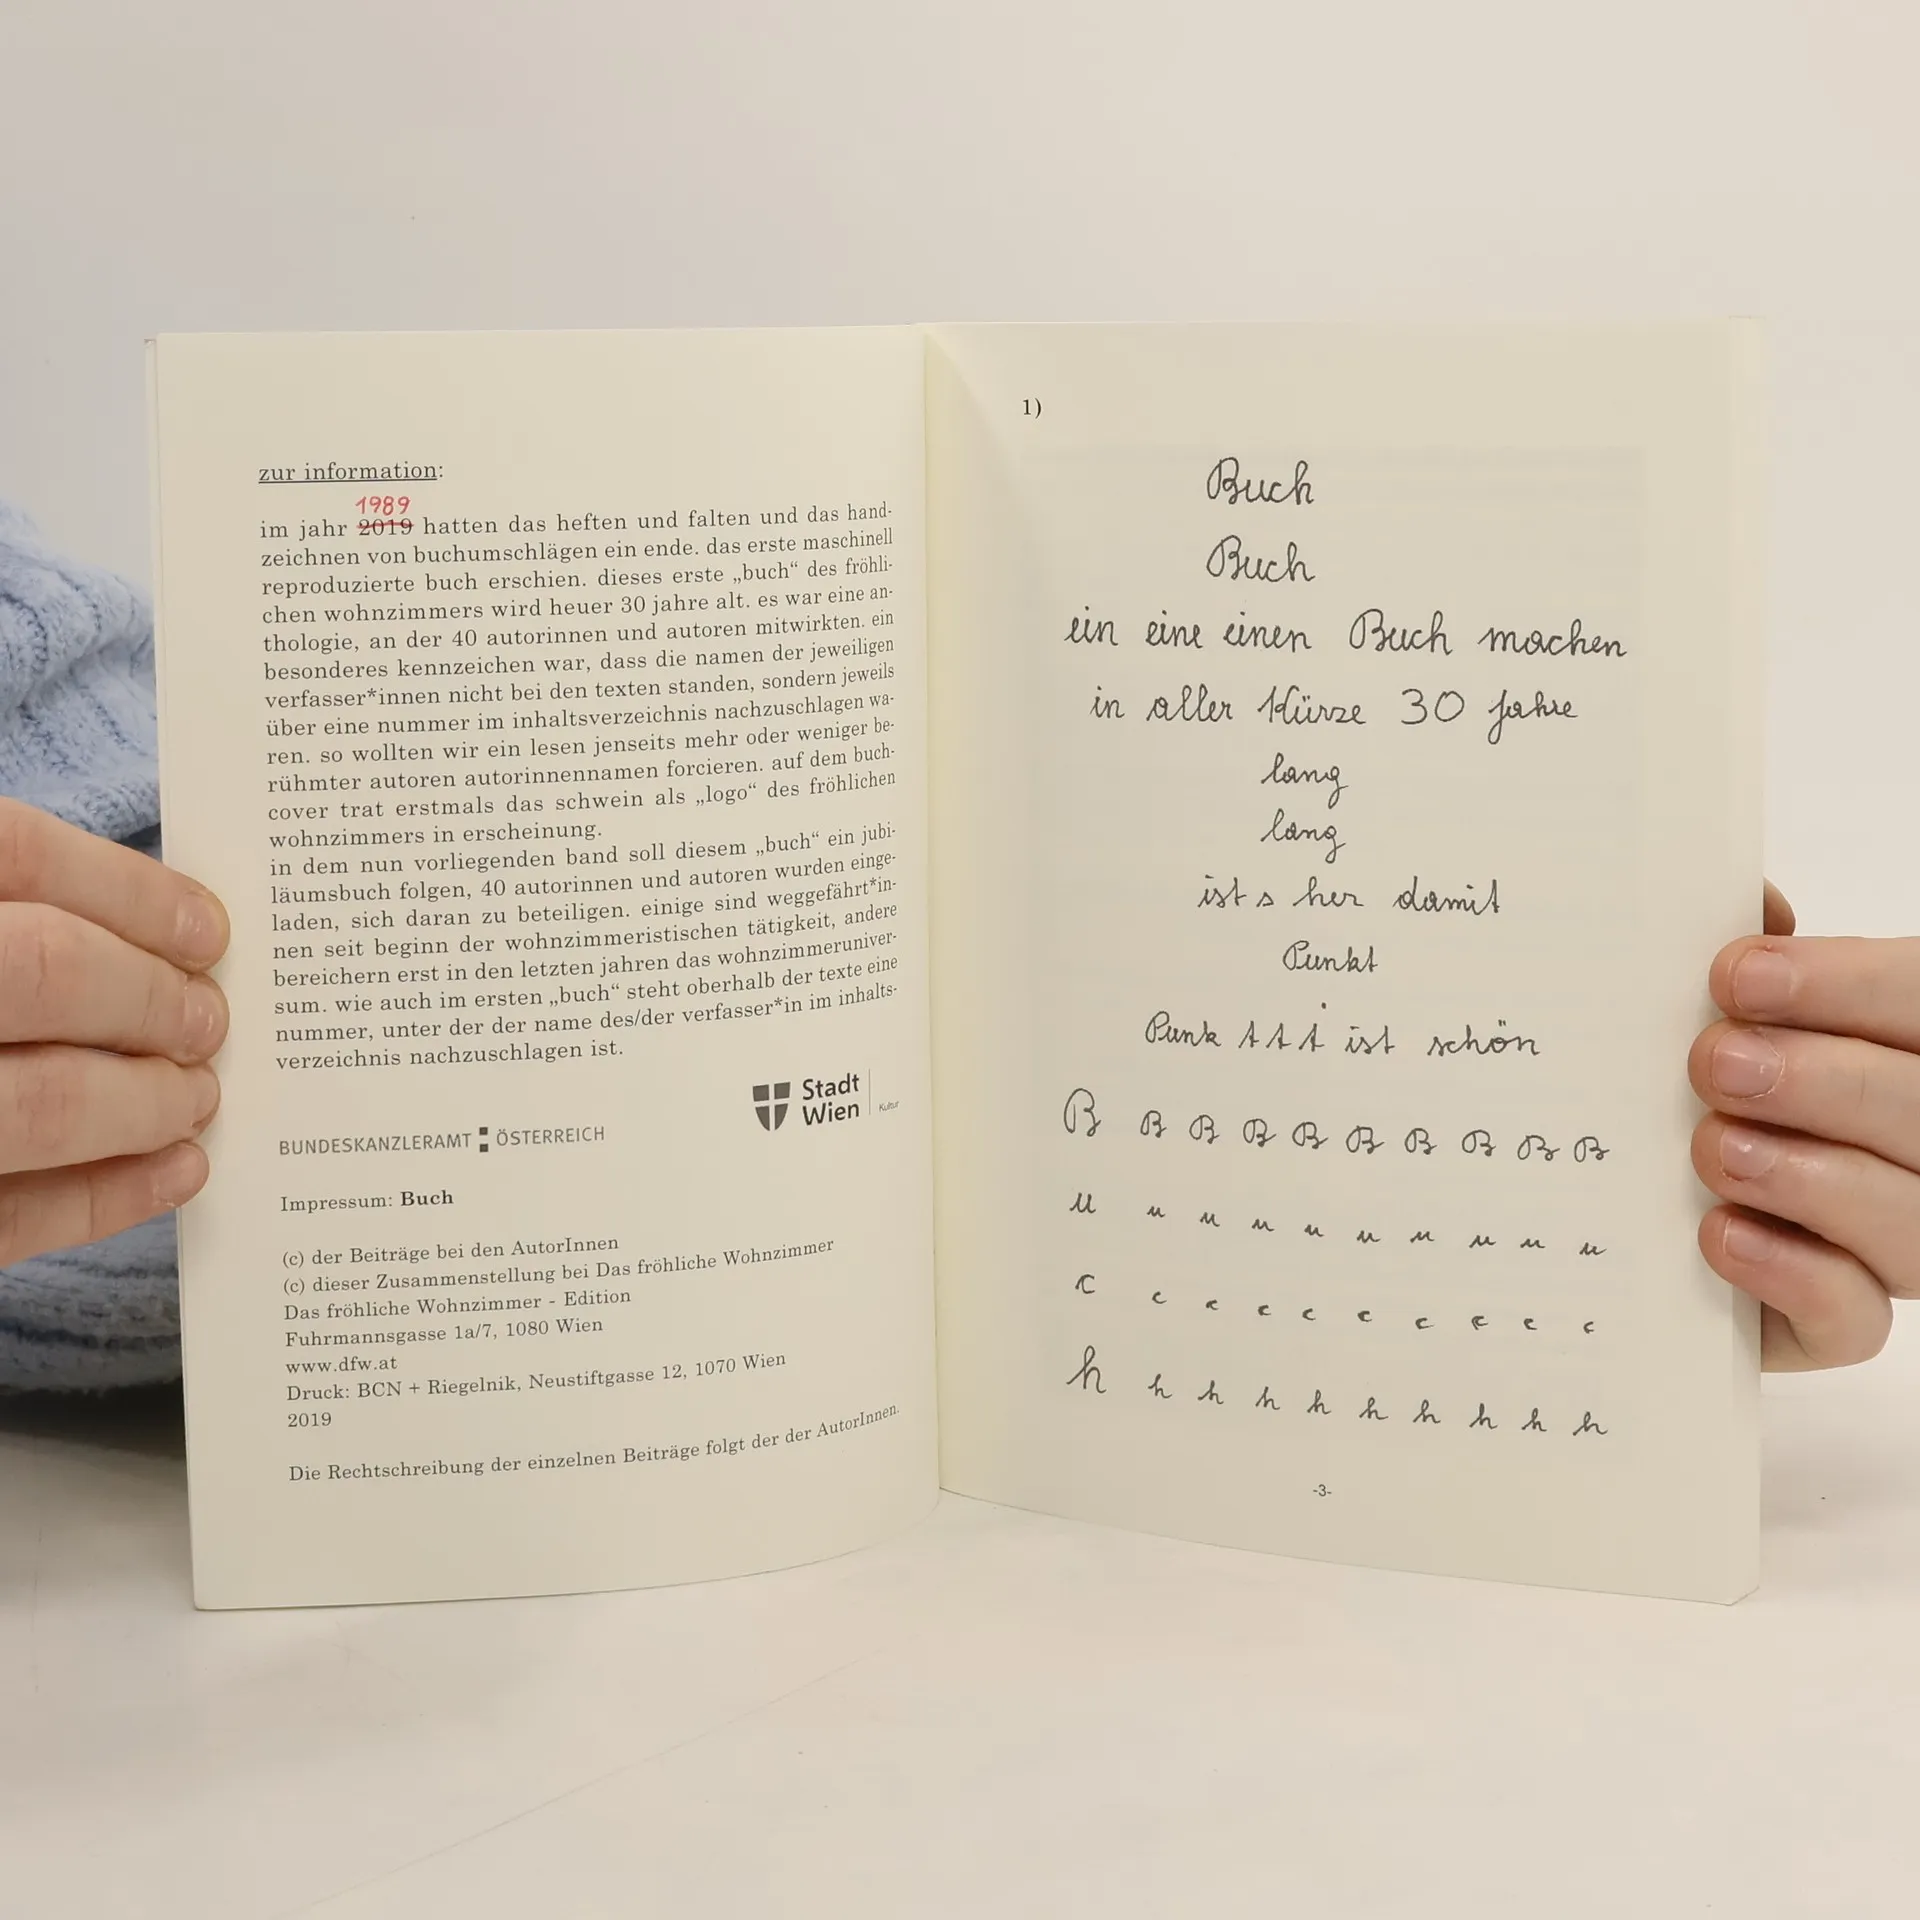 zur information:
1989
im jahr 2019 hatten das heften und falten und das hand-
zeichnen von buchumschlägen ein ende. das erste maschinell
reproduzierte buch erschien. dieses erste „buch“ des fröhli-
chen wohnzimmers wird heuer 30 jahre alt. es war eine an-
thologie, an der 40 autorinnen und autoren mitwirkten. ein
besonderes kennzeichen war, dass die namen der jeweiligen
verfasser*innen nicht bei den texten standen, sondern jeweils
über eine nummer im inhaltsverzeichnis nachzuschlagen wa-
ren. so wollten wir ein lesen jenseits mehr oder weniger be-
rühmter autoren autorinnennamen forcieren. auf dem buch-
cover trat erstmals das schwein als „logo“ des fröhlichen
wohnzimmers in erscheinung.
in dem nun vorliegenden band soll diesem „buch“ ein jubi-
läumsbuch folgen, 40 autorinnen und autoren wurden einge-
laden, sich daran zu beteiligen. einige sind weggefährt*in-
nen seit beginn der wohnzimmeristischen tätigkeit, andere
bereichern erst in den letzten jahren das wohnzimmeruniver-
sum. wie auch im ersten „buch“ steht oberhalb der texte eine
nummer, unter der der name des/der verfasser*in im inhalts-
verzeichnis nachzuschlagen ist.
BUNDESKANZLERAMT ÖSTERREICH
Stadt
Wien
Kultur
Impressum: Buch
(c) der Beiträge bei den AutorInnen
(c) dieser Zusammenstellung bei Das fröhliche Wohnzimmer
Das fröhliche Wohnzimmer - Edition
Fuhrmannsgasse 1a/7, 1080 Wien
www.dfw.at
Druck: BCN + Riegelnik, Neustiftgasse 12, 1070 Wien
2019
Die Rechtschreibung der einzelnen Beiträge folgt der der AutorInnen.
1)
Buch
Buch
ein eine einen Buch machen
in aller Kürze 30 Jahre
lang
lang
ist s her damit
Punkt
Punk t t t ist schön
B B B B B B B B B B
u u u u u u u u u u
c c c c c c c c c c
h h h h h h h h h h
-3-